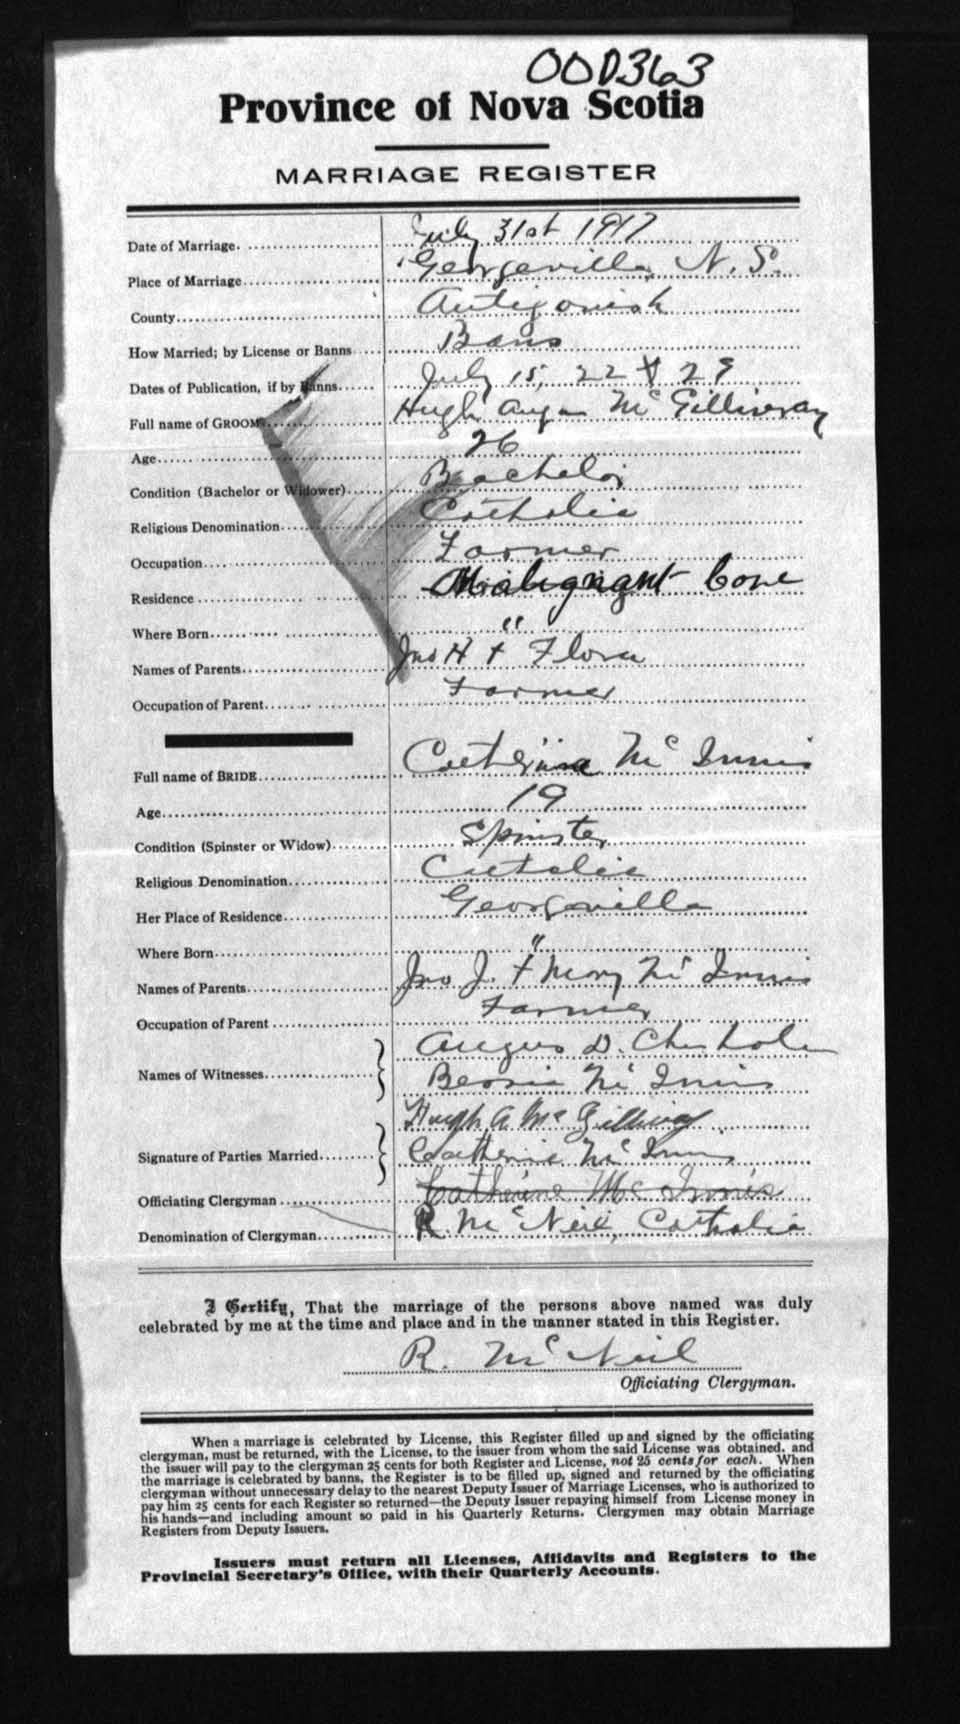 00D363
Province of Nova Scotia
MARRIAGE REGISTER
Date of Marriage. July 31st 1917
Place of Marriage Georgeville, N. S.
County Antigonish
How Married; by License or Banns Bans
Dates of Publication, if by Banns. July 15, 22 & 29
Full name of GROOM Hugh Angus McGillivray
Age 26
Condition (Bachelor or Widower) Bachelor
Religious Denomination Catholic
Occupation Farmer
Residence Malignant Cove
Where Born "
Names of Parents Jno H & Flora
Occupation of Parent Farmer
Full name of BRIDE Catherine McInnis
Age 19
Condition (Spinster or Widow) Spinster
Religious Denomination Catholic
Her Place of Residence Georgeville
Where Born "
Names of Parents Jno J. & Mary McInnis
Occupation of Parent Farmer
Names of Witnesses Angus D. Chisholm
Bessie McInnis
Signature of Parties Married Hugh A. McGillivray
Catherine McInnis
Officiating Clergyman Catherine McInnis
Denomination of Clergyman R McNeil, Catholic
I Certify, That the marriage of the persons above named was duly
celebrated by me at the time and place and in the manner stated in this Register.
R. McNeil
Officiating Clergyman.
When a marriage is celebrated by License, this Register filled up and signed by the officiating
clergyman, must be returned, with the License, to the issuer from whom the said License was obtained, and
the issuer will pay to the clergyman 25 cents for both Register and License, not 25 cents for each. When
the marriage is celebrated by banns, the Register is to be filled up, signed and returned by the officiating
clergyman without unnecessary delay to the nearest Deputy Issuer of Marriage Licenses, who is authorized to
pay him 25 cents for each Register so returned—the Deputy Issuer repaying himself from License money in
his hands—and including amount so paid in his Quarterly Returns. Clergymen may obtain Marriage
Registers from Deputy Issuers.
Issuers must return all Licenses, Affidavits and Registers to the
Provincial Secretary's Office, with their Quarterly Accounts.